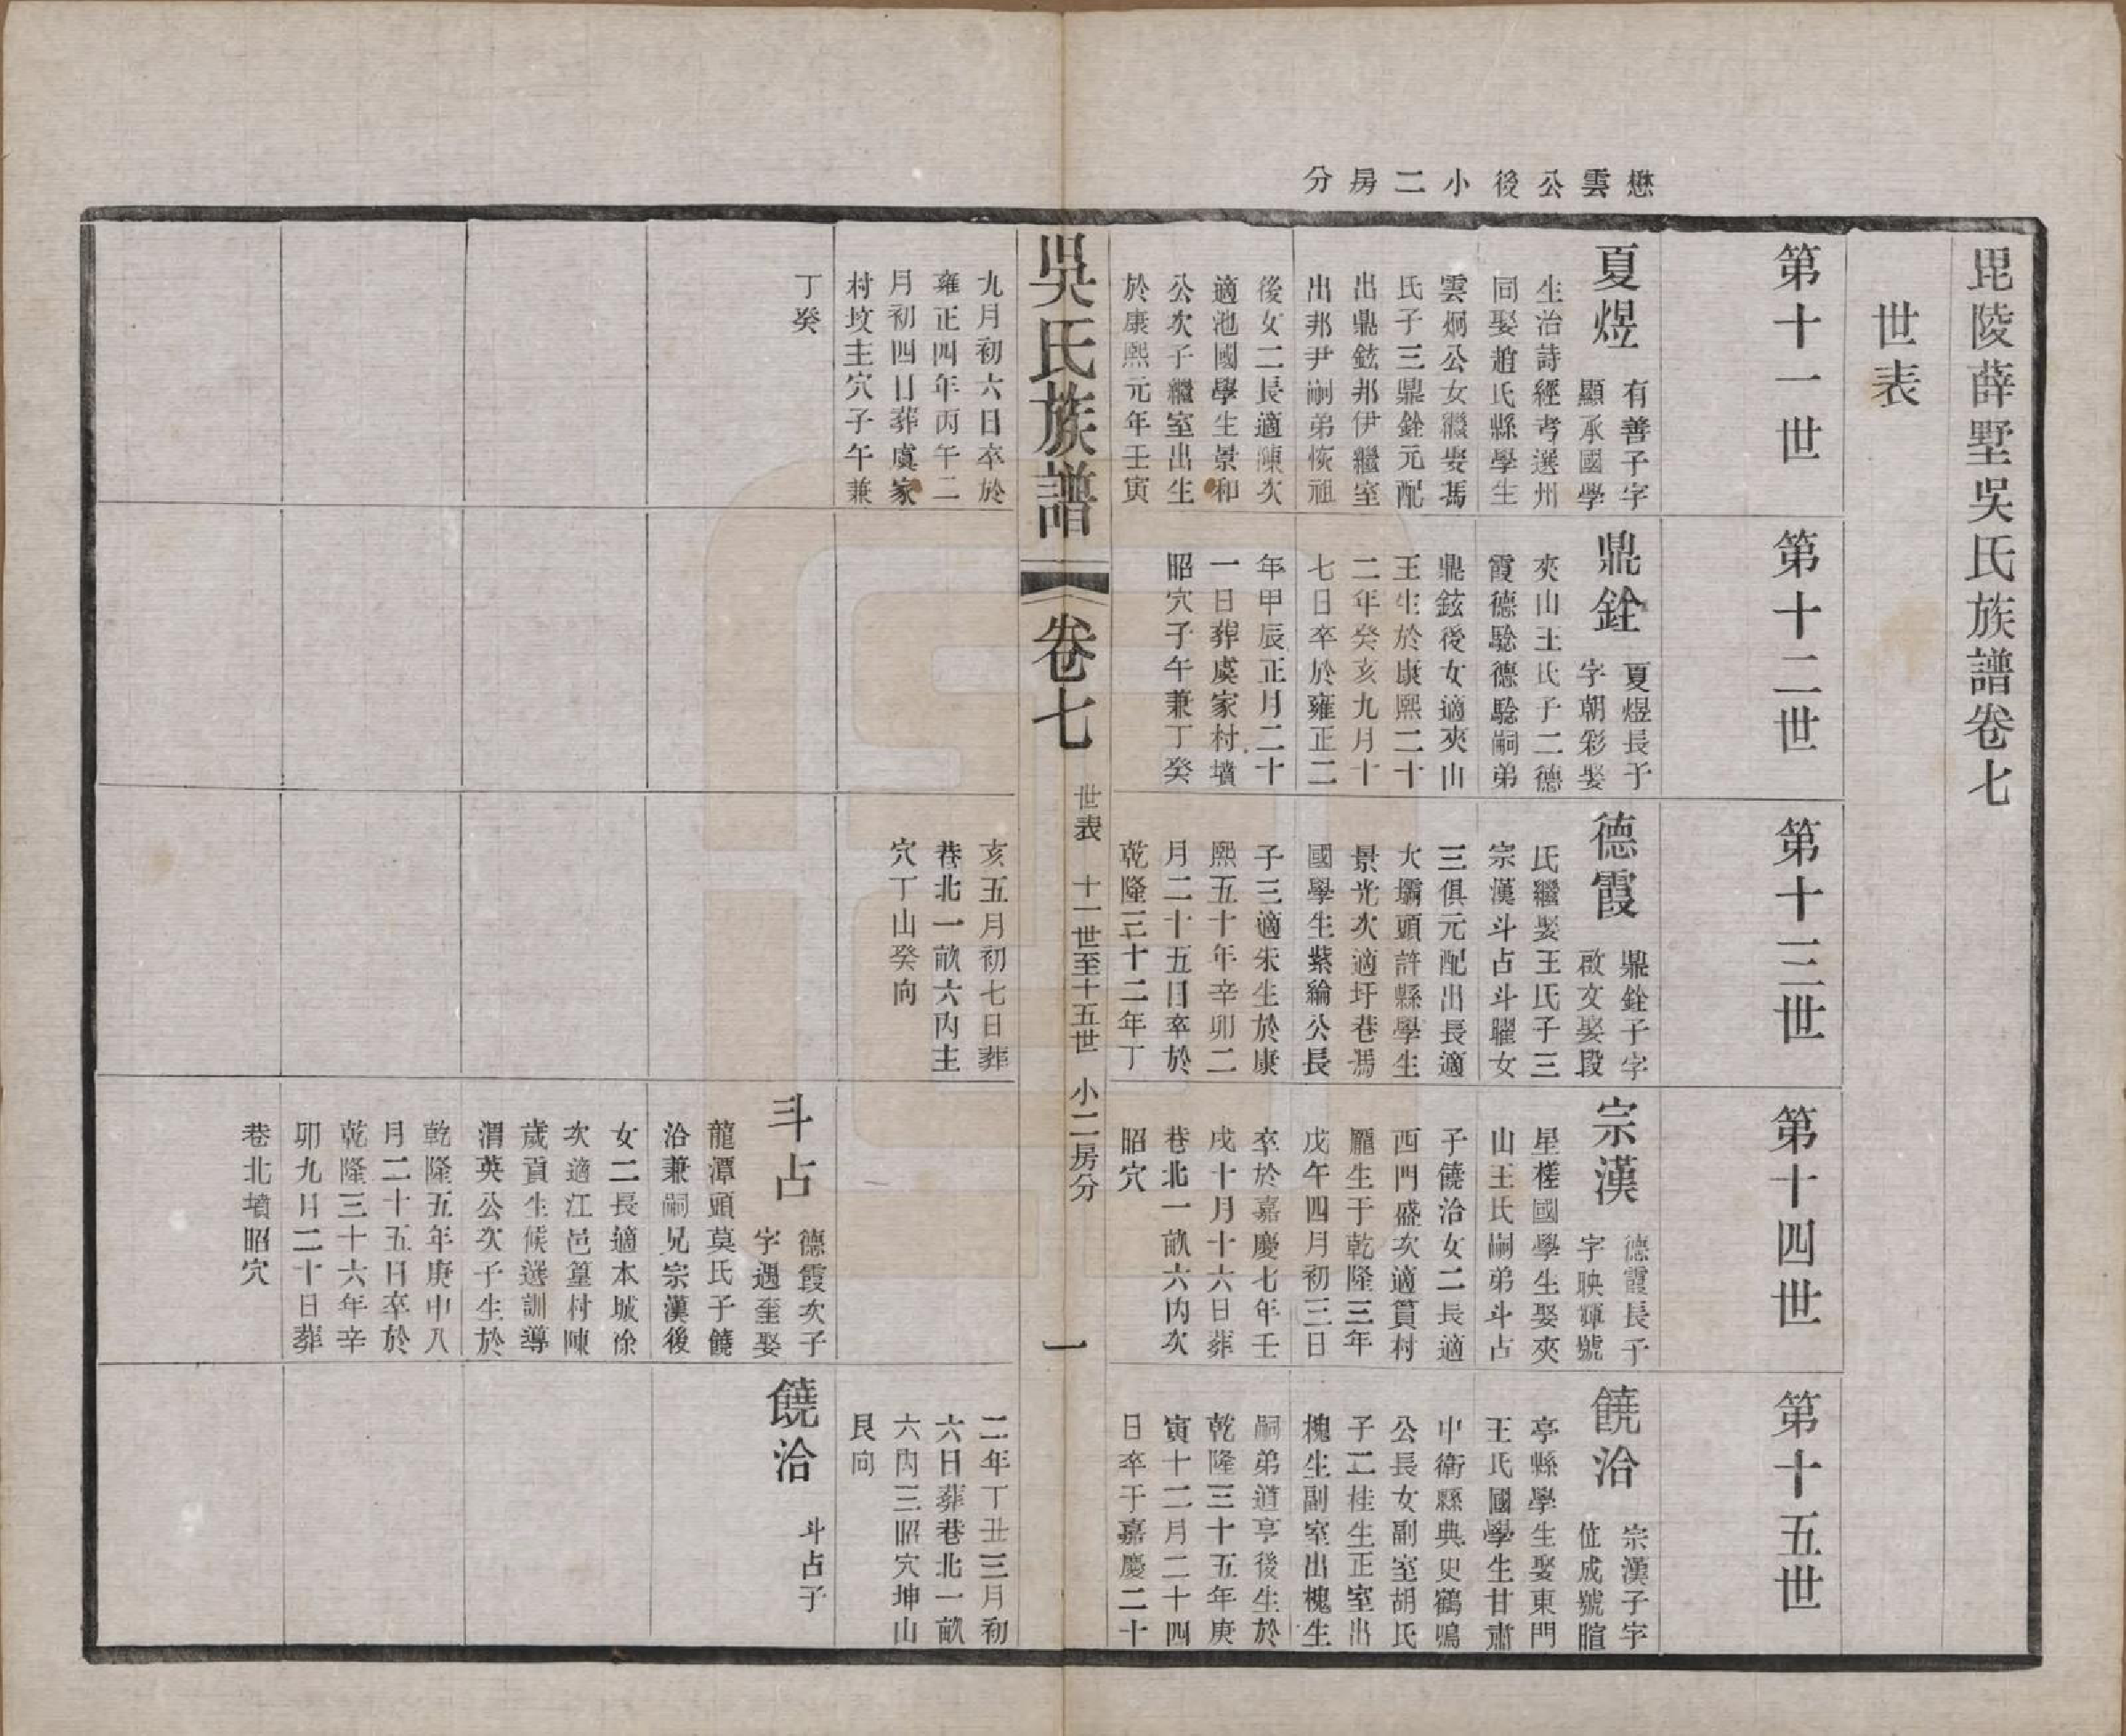 毘陵薛墅吳氏族譜卷七
世表
懋雲公後小二房分
第十一世
夏煜
有善子字
顯承國學
生治詩經考選州
同娶趙氏縣學生
雲炯公女繼娶馮
氏子三鼎銓元配
出鼎鉉邦伊繼室
出邦尹嗣弟恢祖
後女二長適陳次
適池國學生景和
公次子繼室出生
於康熙元年壬寅
九月初六日卒於
雍正四年丙午二
月初四日葬虞家
村坟主穴子午兼
丁癸
第十二世
鼎銓
夏煜長子
字朝彩娶
夾山王氏子二德
霞德騐德騐嗣弟
鼎鉉後女適夾山
王生於康熙二十
二年癸亥九月十
七日卒於雍正二
年甲辰正月二十
一日葬虞家村墳
昭穴子午兼丁癸
第十三世
德霞
鼎銓子字
啟文娶段
氏繼娶王氏子三
宗漢斗占斗曜女
三俱元配出長適
大壩頭許縣學生
景光次適圩巷馮
國學生紫綸公長
子三適朱生於康
熙五十年辛卯二
月二十五日卒於
乾隆三十二年丁
亥五月初七日葬
巷北一畝六內主
穴丁山癸向
第十四世
宗漢
德霞長子
字映輝號
星槎國學生娶夾
山王氏嗣弟斗占
子饒治女二長適
西門盛次適篔村
龐生于乾隆三年
戊午四月初三日
卒於嘉慶七年壬
戌十月十六日葬
巷北一畝六內次
昭穴
斗占
德霞次子
字遇奎娶
龍潭頭莫氏子饒
治兼嗣兄宗漢後
女二長適本城徐
次適江邑篁村陳
歲貢生候選訓導
渭英公次子生於
乾隆五年庚申八
月二十五日卒於
乾隆三十六年辛
卯九月二十日葬
巷北墳昭穴
第十五世
饒治
宗漢子字
位成號暄
亭縣學生娶東門
王氏國學生甘肅
中衛縣典史鶴鳴
公長女副室胡氏
子二桂生正室出
槐生副室出槐生
嗣弟道亨後生於
乾隆三十五年庚
寅十二月二十四
日卒于嘉慶二十
二年丁丑三月初
六日葬巷北一畝
六內三昭穴坤山
艮向
饒治
斗占子
吳氏族譜
卷七
世表 十一世至十五世 小二房分
一